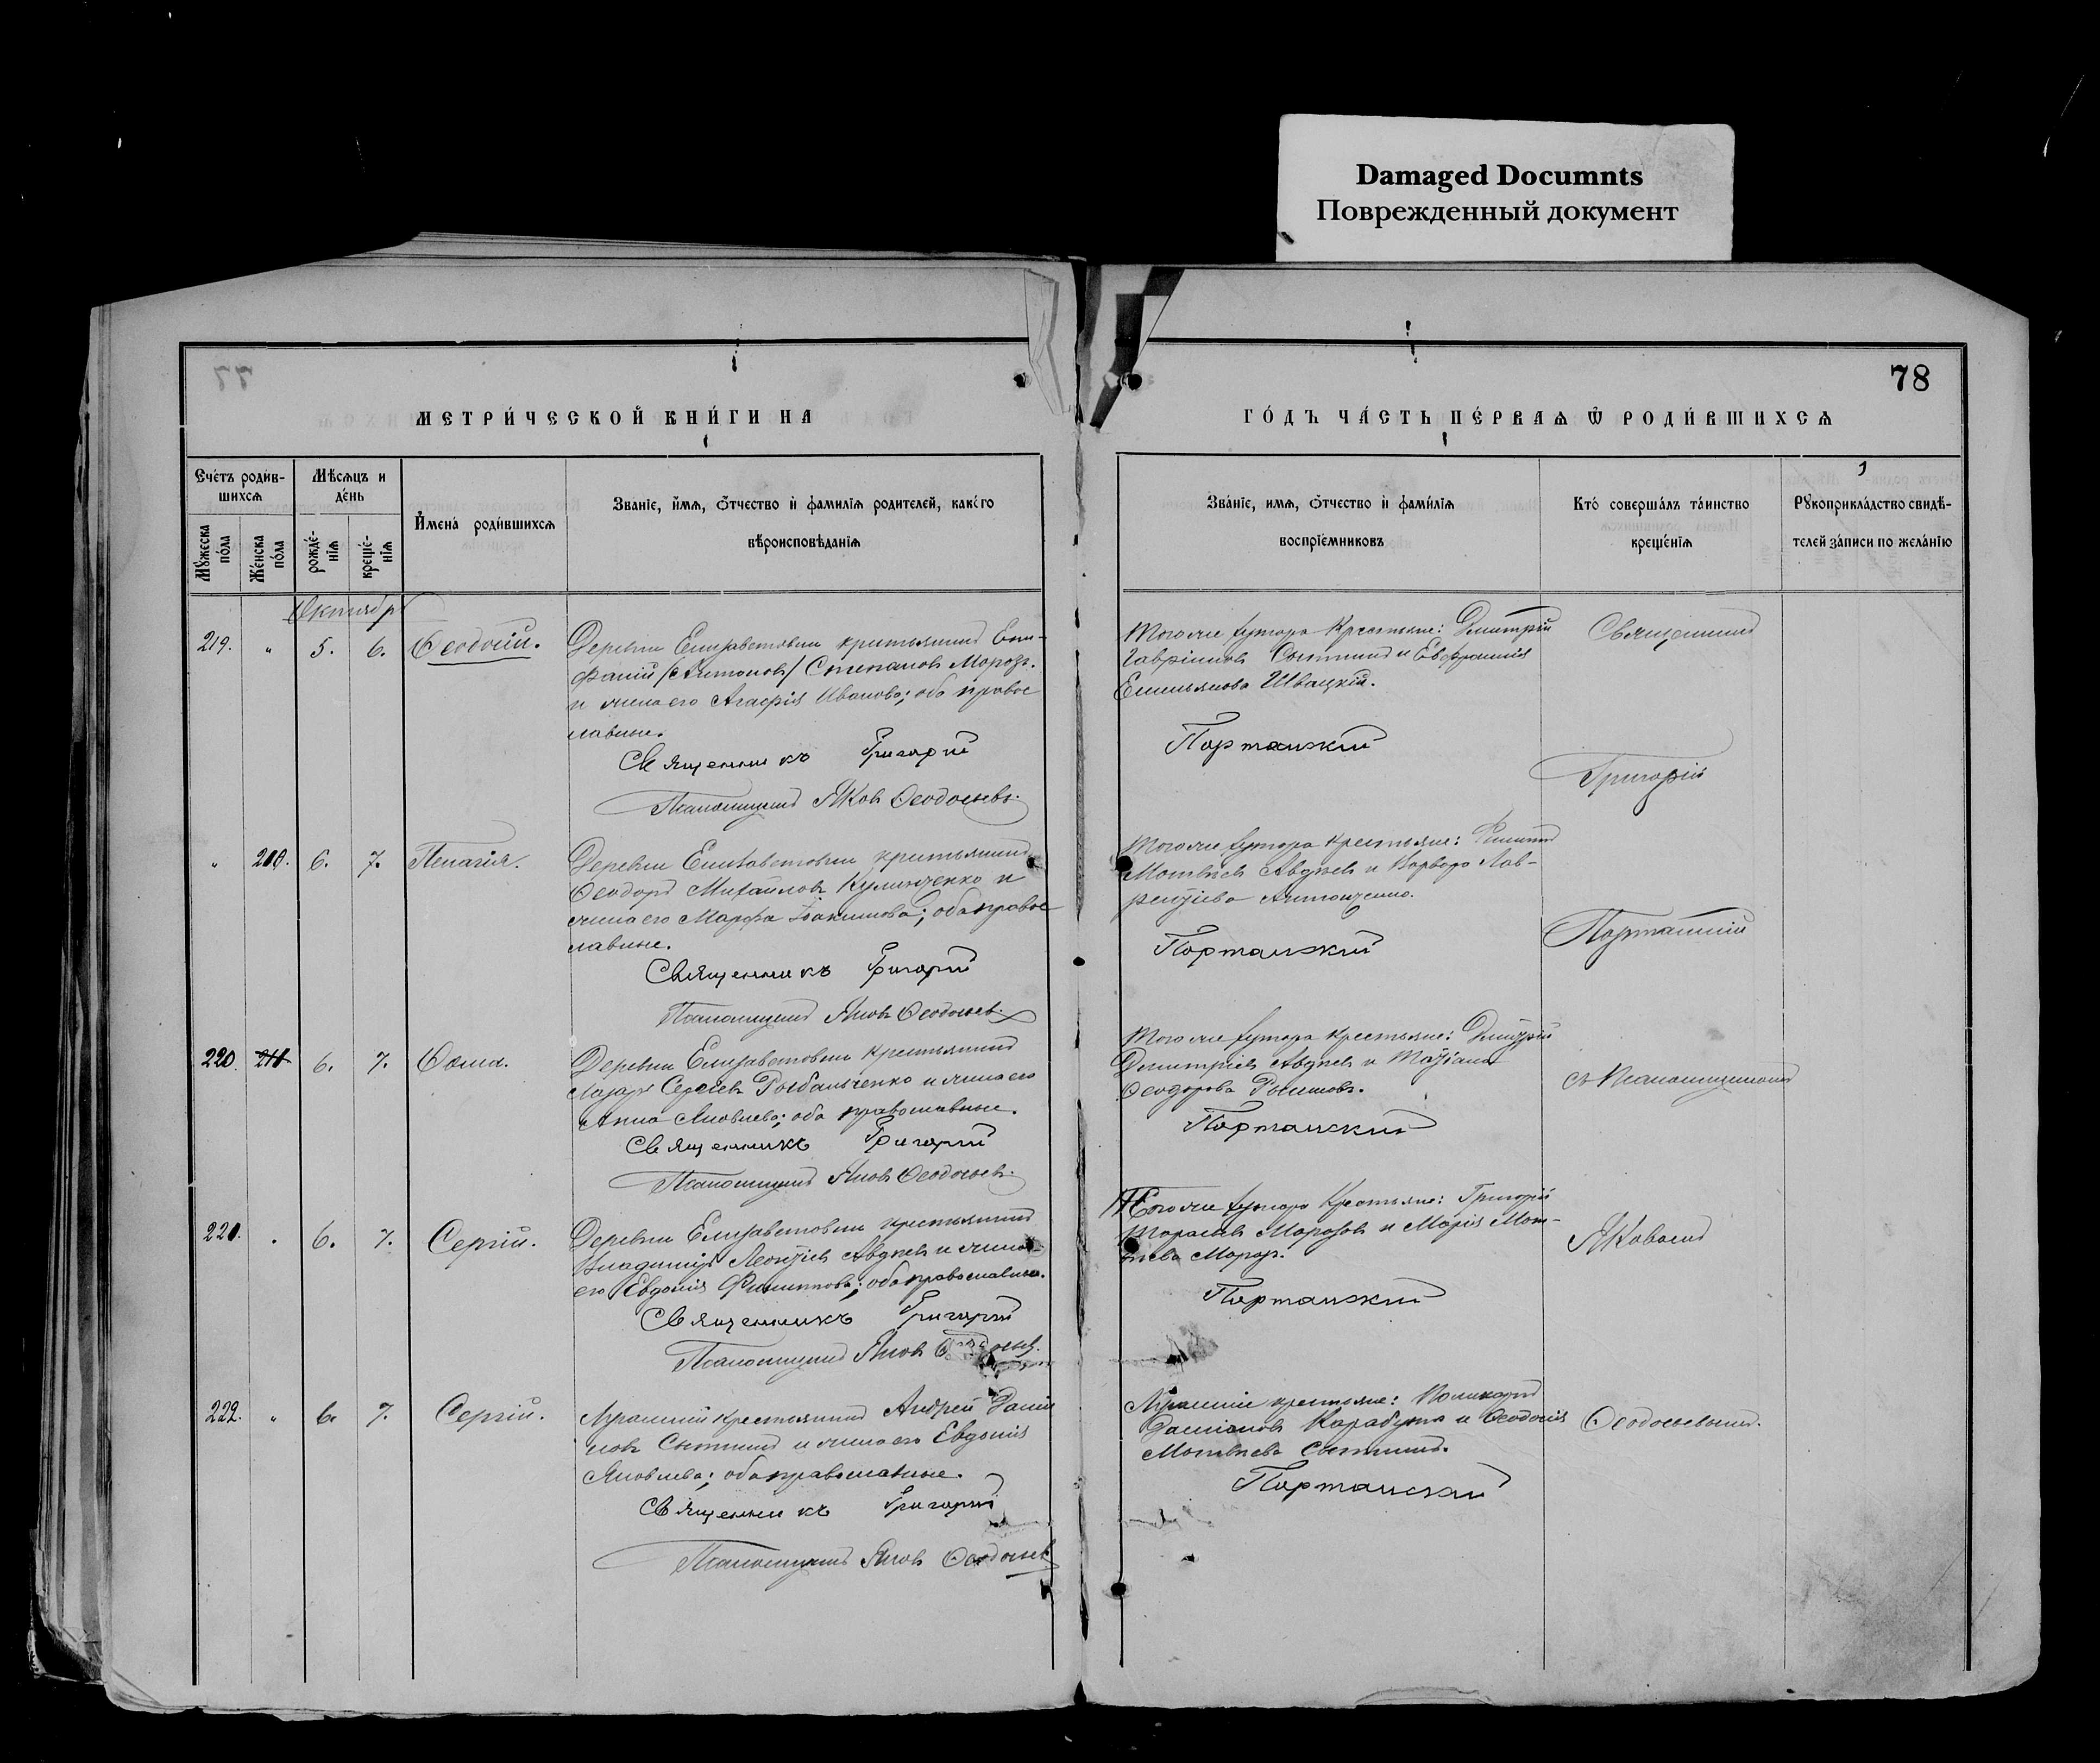 Damaged Documnts
Поврежденный документ
78
МЕТРИ́ЧЕСКОЙ КНИ́ГИ НА
ГО́ДЪ ЧА́СТЬ ПЕ́РВАѦ Ѿ РОДИ́ВШИХСѦ
Счéтъ роди́в-
шихсѧ
Мѣ́сѧцъ и
дéнь
Мꙋ́жеска
по́ла
Жéнска
по́ла
рождé-
нїѧ
крещé-
нїѧ
И҆мена̀ роди́вшихсѧ
Зва́нїе, и҆́мѧ, ѻ҆́тчество и҆ фамилїѧ родителей, како́го
вѣроисповѣ́данїѧ
Зва́нїе, имѧ, ѻ҆́тчество и҆ фами́лїѧ
воспрїе́мниковъ
Кто̀ соверша́лъ та́инство
крещéнїѧ
Рꙋкоприкла́дство свидѣ́-
телей за́писи по жела́нїю
Октябрь
219. " 5. 6. Ѳеодосій.
Деревни Елизаветовки крестьянинъ Епи-
фаній /Антонов/ Степановъ Морозъ.
и жена его Агафія Иванова; оба правос
лавные.
Священникъ Григорій
Псаломщикъ Яковъ Ѳеодосьевъ.
Того же хутора Крестьяне: Дмитрій
Гавріиловъ Сытникъ и Евфросинія
Емельянова
Портанскій
Священникъ
Григорій
" 210. 6. 7. Пелагія.
Деревни Елизаветовки крестьянинъ
Ѳеодоръ Михайловъ и
жена его Марфа Іоакимова; оба правос
лавные.
Священникъ Григорій
Псаломщикъ Яковъ Ѳеодосьевъ.
Того же хутора крестьяне: Филиппъ
Матвѣевъ Авдѣевъ и Варвара Лав-
рентіева
Портанскій
Портанскій
220. 211 6. 7. Ѳома.
Деревни Елизаветовки крестьянинъ
Лазарь Сергѣевъ Рыбальченко и жена его
Анна Яковлева; оба православные.
Священникъ Григорій
Псаломщикъ Яковъ Ѳеодосьевъ.
Того же хутора крестьяне: Дмитрій
Димитріевъ Авдѣевъ и Татіана
Ѳеодорова
Портанскій
съ Псаломщикомъ
221. . 6. 7. Сергій.
Деревни Елизаветовки крестьянинъ
Владиміръ Леонтіевъ Авдѣевъ и жена
его Евдокія Филиппова; оба православные.
Священникъ Григорій
Псаломщикъ Яковъ Ѳеодосьевъ.
Того же хутора Крестьяне: Григорій
Тарасовъ Морозовъ и Марія Мат-
вѣева Морозъ.
Портанскій
Яковомъ
222. " 6. 7. Сергій.
крестьянинъ Андрей Дани
ловъ Сытникъ и жена его Евдокія
Яковлева; оба православные.
Священникъ Григорій
Псаломщикъ Яковъ Ѳеодосьевъ
крестьяне: Поликарпъ
Карабута и Ѳеодосія
Матвѣева Сытникъ.
Портанскій
Ѳеодосьевымъ.